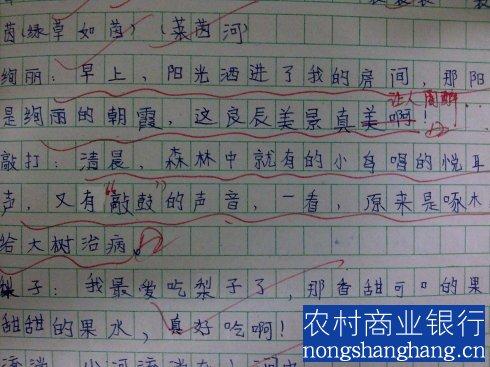 茵(绿草如茵)(莱茵河)
绚丽:早上,阳光洒进了我的房间,那阳
让人陶醉
是绚丽的朝霞,这良辰美景真美啊!
敲打:清晨,森林中就有的小鸟唱的悦耳
声,又有“敲鼓”的声音,一看,原来是啄木
给大树治病。
梨子:我最爱吃梨子了,那香甜可口的果
甜甜的果水,真好吃啊!
农村商业银行
nongshanghang.cn